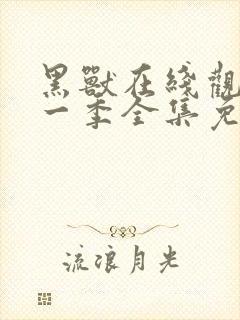 黑獸在綫觀
一季全集免
流浪月光